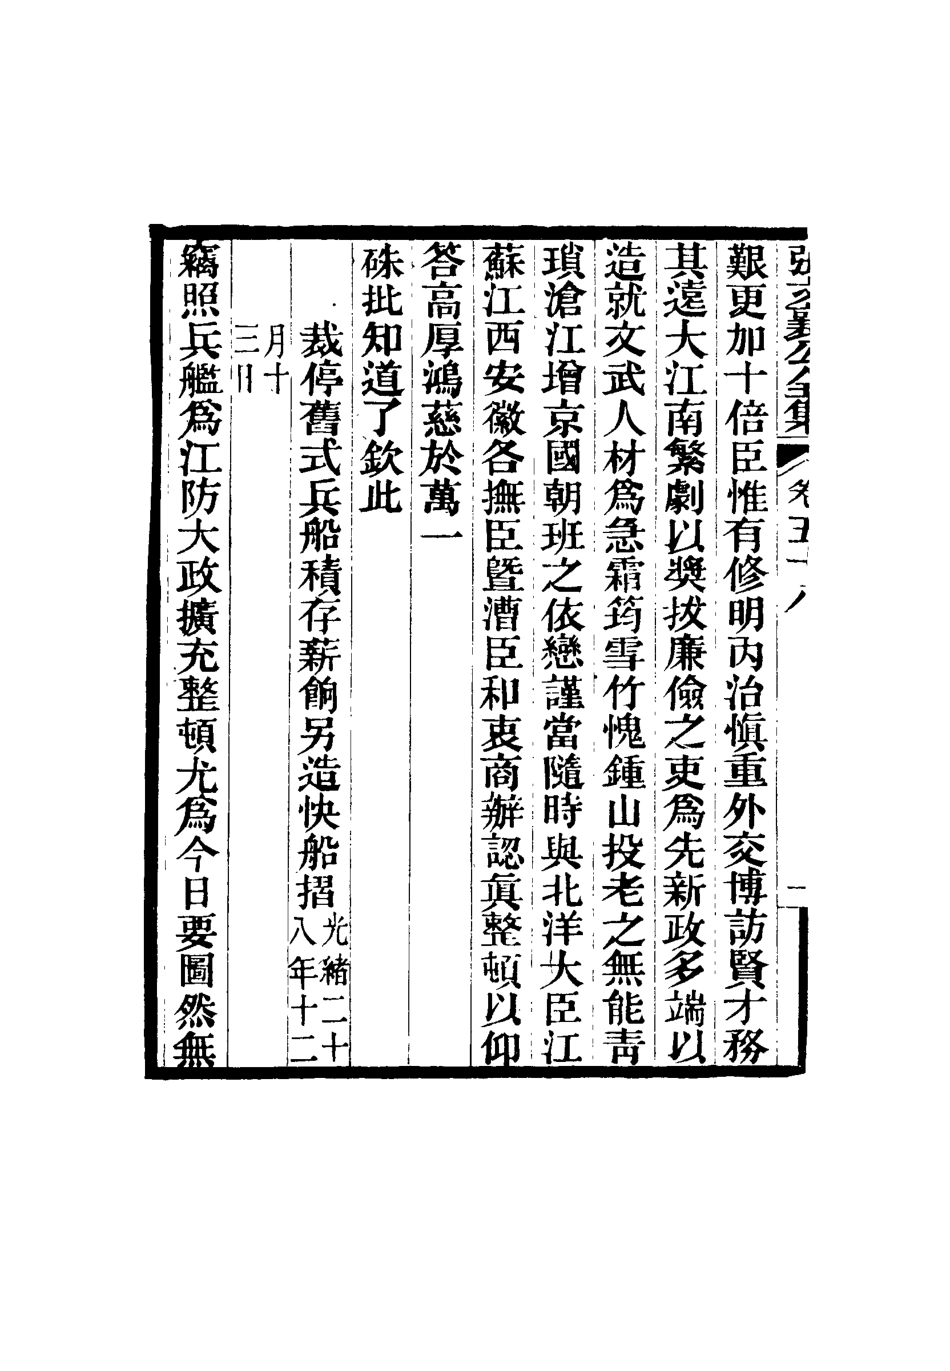 張文襄公全集 卷五十八 二
艱更加十倍臣惟有修明內治愼重外交博訪賢才務
其遠大江南繁劇以奬拔廉儉之吏爲先新政多端以
造就文武人材爲急霜筠雪竹愧鍾山投老之無能靑
瑣滄江增京國朝班之依戀謹當隨時與北洋大臣江
蘇江西安徽各撫臣曁漕臣和衷商辦認眞整頓以仰
答高厚鴻慈於萬一
硃批知道了欽此
裁停舊式兵船積存薪餉另造快船摺光緒二十八年十二
月十三日
竊照兵艦爲江防大政擴充整頓尤爲今日要圖然無